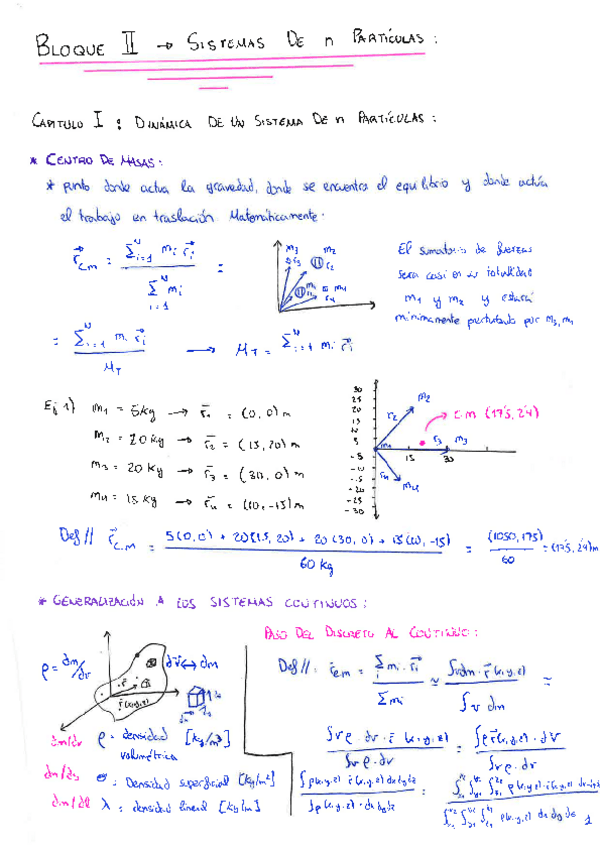 BLOQUE II → SISTEMAS DE n PARTÍCULAS:
CAPITULO I: DINÁMICA DE UN SISTEMA DE n PARTÍCULAS:
* CENTRO DE MASAS:
* punto donde actua la gravedad, donde se encuentra el equilibrio y donde actúa
el trabajo en traslación. Matemáticamente:
r⃗cm = Σᵢ₌₁ᴺ mᵢ r⃗ᵢ / Σᵢ₌₁ᴺ mᵢ =
m3 r3 m2 r2 m1 r1 m4 r4
El sumatorio de fuerzas
sera casi en su totalidad
m1 y m2 y estará
minimamente perturbado por m3, m4
= Σᵢ₌₁ᴺ mᵢ r⃗ᵢ / MT → MT = Σᵢ₌₁ᴺ mᵢ r⃗ᵢ
Ej 1) m1 = 5kg → r⃗1 = (0,0) m
m2 = 20kg → r⃗2 = (15,20) m
m3 = 20 kg → r⃗3 = (30,0) m
m4 = 15 kg → r⃗4 = (10,-15) m
30
25
20
15
10
5
-5
-10
-15
-20
-25
-30
m2 r2 c.m (17'5, 2'4)
m1 r3 m3
15 30
r4 m4
Def// r⃗c.m = 5(0,0) + 20(15,20) + 20(30,0) + 15(10,-15) / 60 kg = (1050,175) / 60 = (17'5, 2'4)m
* GENERALIZACIÓN A LOS SISTEMAS CONTINUOS:
PASO DEL DISCRETO AL CONTINUO:
ρ = dm/dv
dv ↔ dm
r⃗(x,y,z)
dm/dv ρ = densidad [kg/m³]
volumétrica
dm/ds σ: Densidad superficial [kg/m²]
dm/dl λ = densidad lineal [kg/m]
Def//: r⃗cm = Σᵢ mᵢ · r⃗ᵢ / Σ mᵢ ≃ ∫v dm · r⃗(x,y,z) / ∫v dm =
∫v ρ · dv · r⃗ (x,y,z) / ∫v ρ · dv = ∫ρ r⃗(x,y,z) · dV / ∫v ρ · dV
∫ρ(x,y,z) r⃗(x,y,z) dxdydz / ∫ρ(x,y,z) · dxdydz =
1